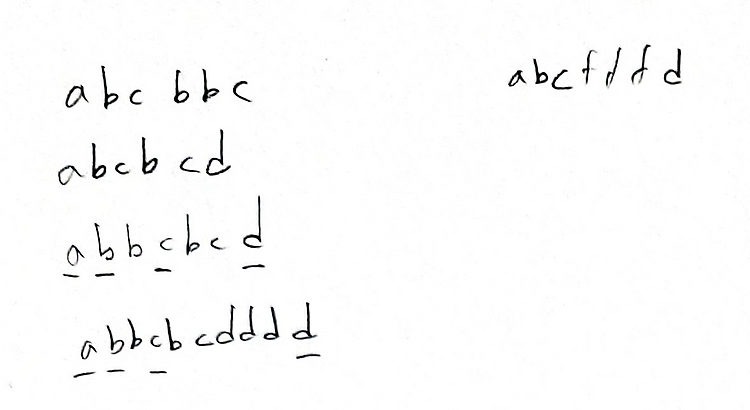 abc bbc
abcb cd
abbcbcd
abbcbcdddd
abcfdfd